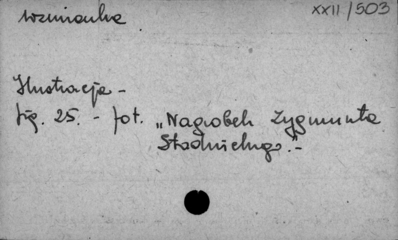 wzmianka
XXII/503
Ilustracja -
fig. 25. - fot. "Nagrobek Zygmunta
Stadnickiego."-